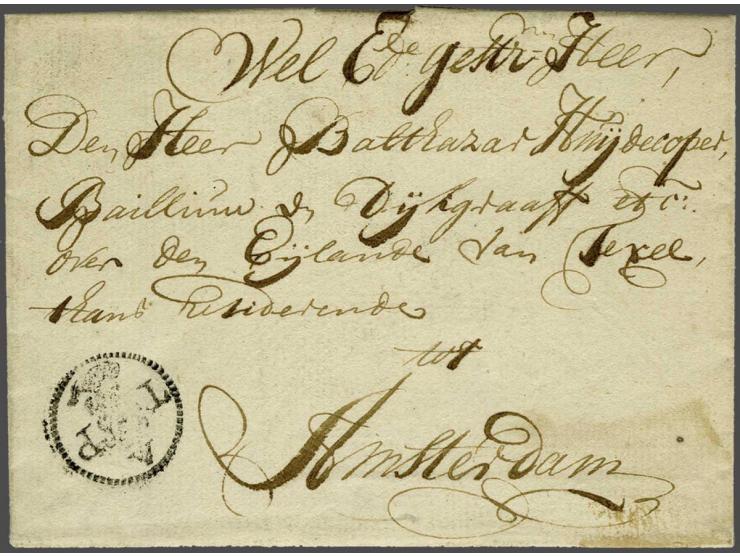 Wel Ede. gestr. Heer,
Den Heer Balthazar Huijdecoper,
Bailliuw en Dijkgraaff etc:
over den Eijlande van Texel,
thans resiederende
tot
Amsterdam